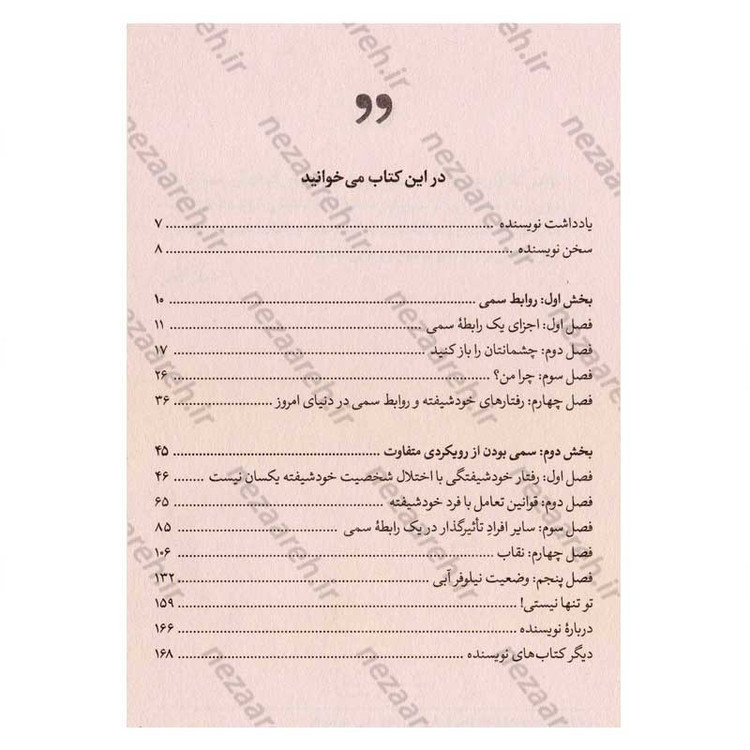 در این کتاب می‌خوانید
یادداشت نویسنده ........ ۷
سخن نویسنده ........ ۸
بخش اول: روابط سمی ........ ۱۰
فصل اول: اجزای یک رابطهٔ سمی ........ ۱۱
فصل دوم: چشمانتان را باز کنید ........ ۱۷
فصل سوم: چرا من؟ ........ ۲۶
فصل چهارم: رفتارهای خودشیفته و روابط سمی در دنیای امروز ........ ۳۶
بخش دوم: سمی بودن از رویکردی متفاوت ........ ۴۵
فصل اول: رفتار خودشیفتگی با اختلال شخصیت خودشیفته یکسان نیست ........ ۴۶
فصل دوم: قوانین تعامل با فرد خودشیفته ........ ۶۵
فصل سوم: سایر افرادِ تأثیرگذار در یک رابطهٔ سمی ........ ۸۵
فصل چهارم: نقاب ........ ۱۰۶
فصل پنجم: وضعیت نیلوفر آبی ........ ۱۳۲
تو تنها نیستی! ........ ۱۵۹
دربارهٔ نویسنده ........ ۱۶۶
دیگر کتاب‌های نویسنده ........ ۱۶۸
nezaareh.ir